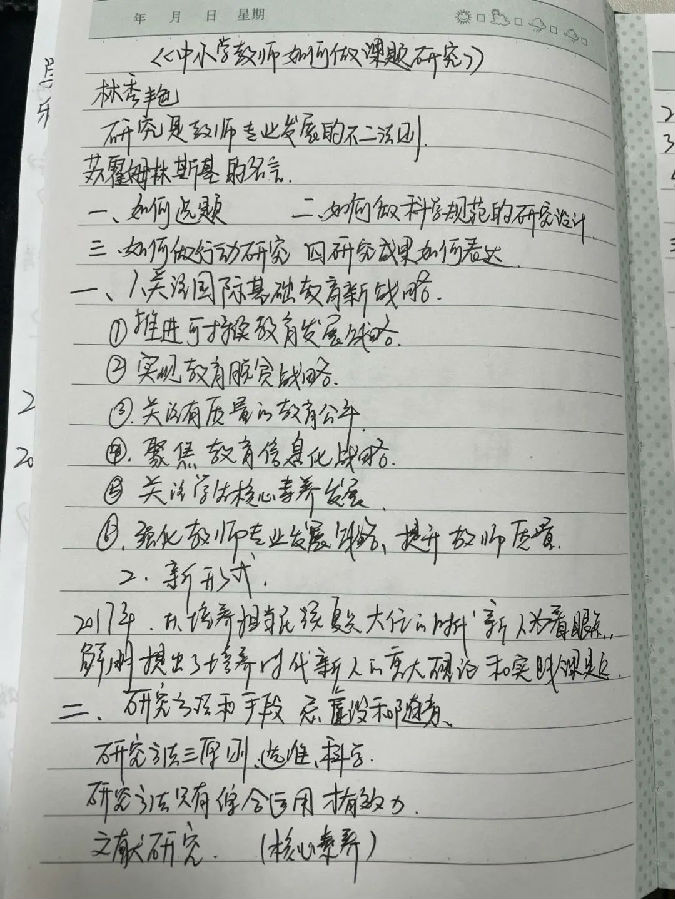 年 月 日 星期
《中小学教师如何做课题研究》
林秀艳
研究是教师专业发展的不二法则.
苏霍姆林斯基的名言.
一、如何选题 二、如何做科学规范的研究设计
三.如何做行动研究 四研究成果如何表达
一、1.关注国际基础教育新战略.
①推进可持续教育发展战略.
②实现教育脱贫战略.
③.关注有质量的教育公平
④.聚焦教育信息化战略.
⑤关注学生核心素养发展
⑥.强化教师专业发展战略、提升教师质量.
2.新形式.
2017年.从培养担当民族复兴大任的时代新人为着眼点,
鲜明提出了培养时代新人的重大理论和实践课题.
二、研究方法和手段 忌虚设和随意、
研究方法三原则、选准、科学.
研究方法只有综合运用才有效力.
文献研究. (核心素养)